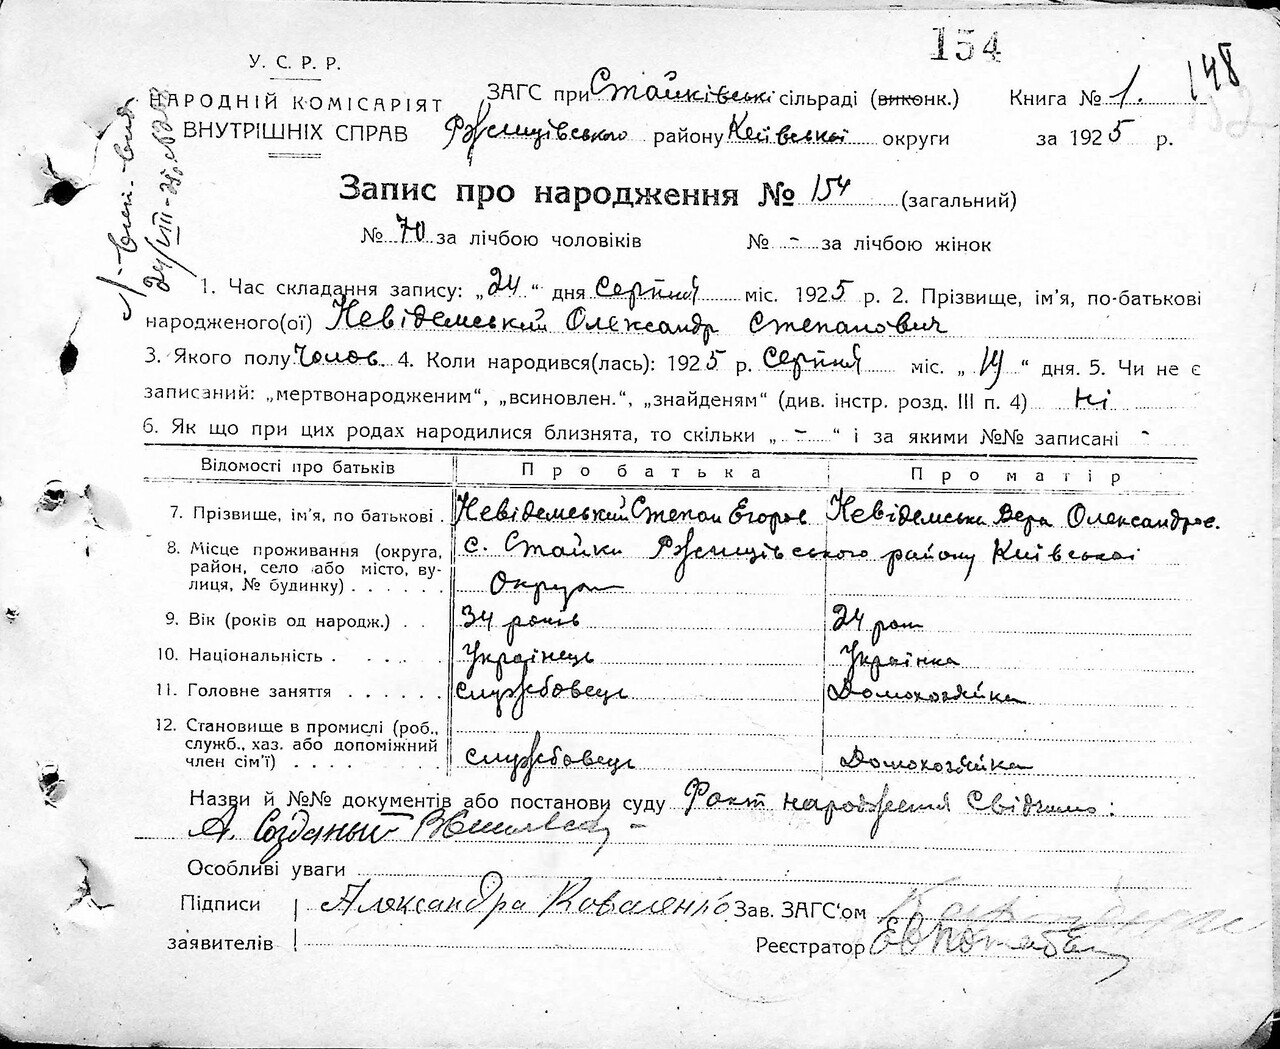 154
148
У. С. Р. Р.
НАРОДНІЙ КОМІСАРІЯТ
ВНУТРІШНІХ СПРАВ
ЗАГС при Стайківські сільраді (виконк.) Книга № 1.
Ржищівського району Київської округи за 1925 р.
Запис про народження № 154 (загальний)
№ 70 за лічбою чоловіків № - за лічбою жінок
1. Час складання запису: „24" дня Серпня міс. 1925 р. 2. Прізвище, ім'я, по-батькові
народженого(ої) Невідемський Олександр Степанович
3. Якого полу Чолов. 4. Коли народився(лась): 1925 р. Серпня міс. „19" дня. 5. Чи не є
записаний: „мертвонародженим", „всиновлен.", „знайденям" (див. інстр. розд. III п. 4) Ні
6. Як що при цих родах народилися близнята, то скільки „ - " і за якими №№ записані -
Відомості про батьків Про батька Про матір
7. Прізвище, ім'я, по батькові . Невідемський Степан Егоров Невідемська Вера Олександров.
8. Місце проживання (округа, с. Стайки Ржищівського району Київської
район, село або місто, ву-
лиця, № будинку) . . . . . . Округи
9. Вік (років од народж.) . . 34 років 24 рок
10. Національність . . . . . Українець Українка
11. Головне заняття . . . . . . службовець Домохозяйка
12. Становище в промислі (роб.,
служб., хаз. або допоміжний
член сім'ї) . . . . . . . . службовець Домохозяйка
Назви й №№ документів або постанови суду Факт народження Свідчить:
Особливі уваги
Підписи Александра Коваленко Зав. ЗАГС'ом
заявителів Реєстратор